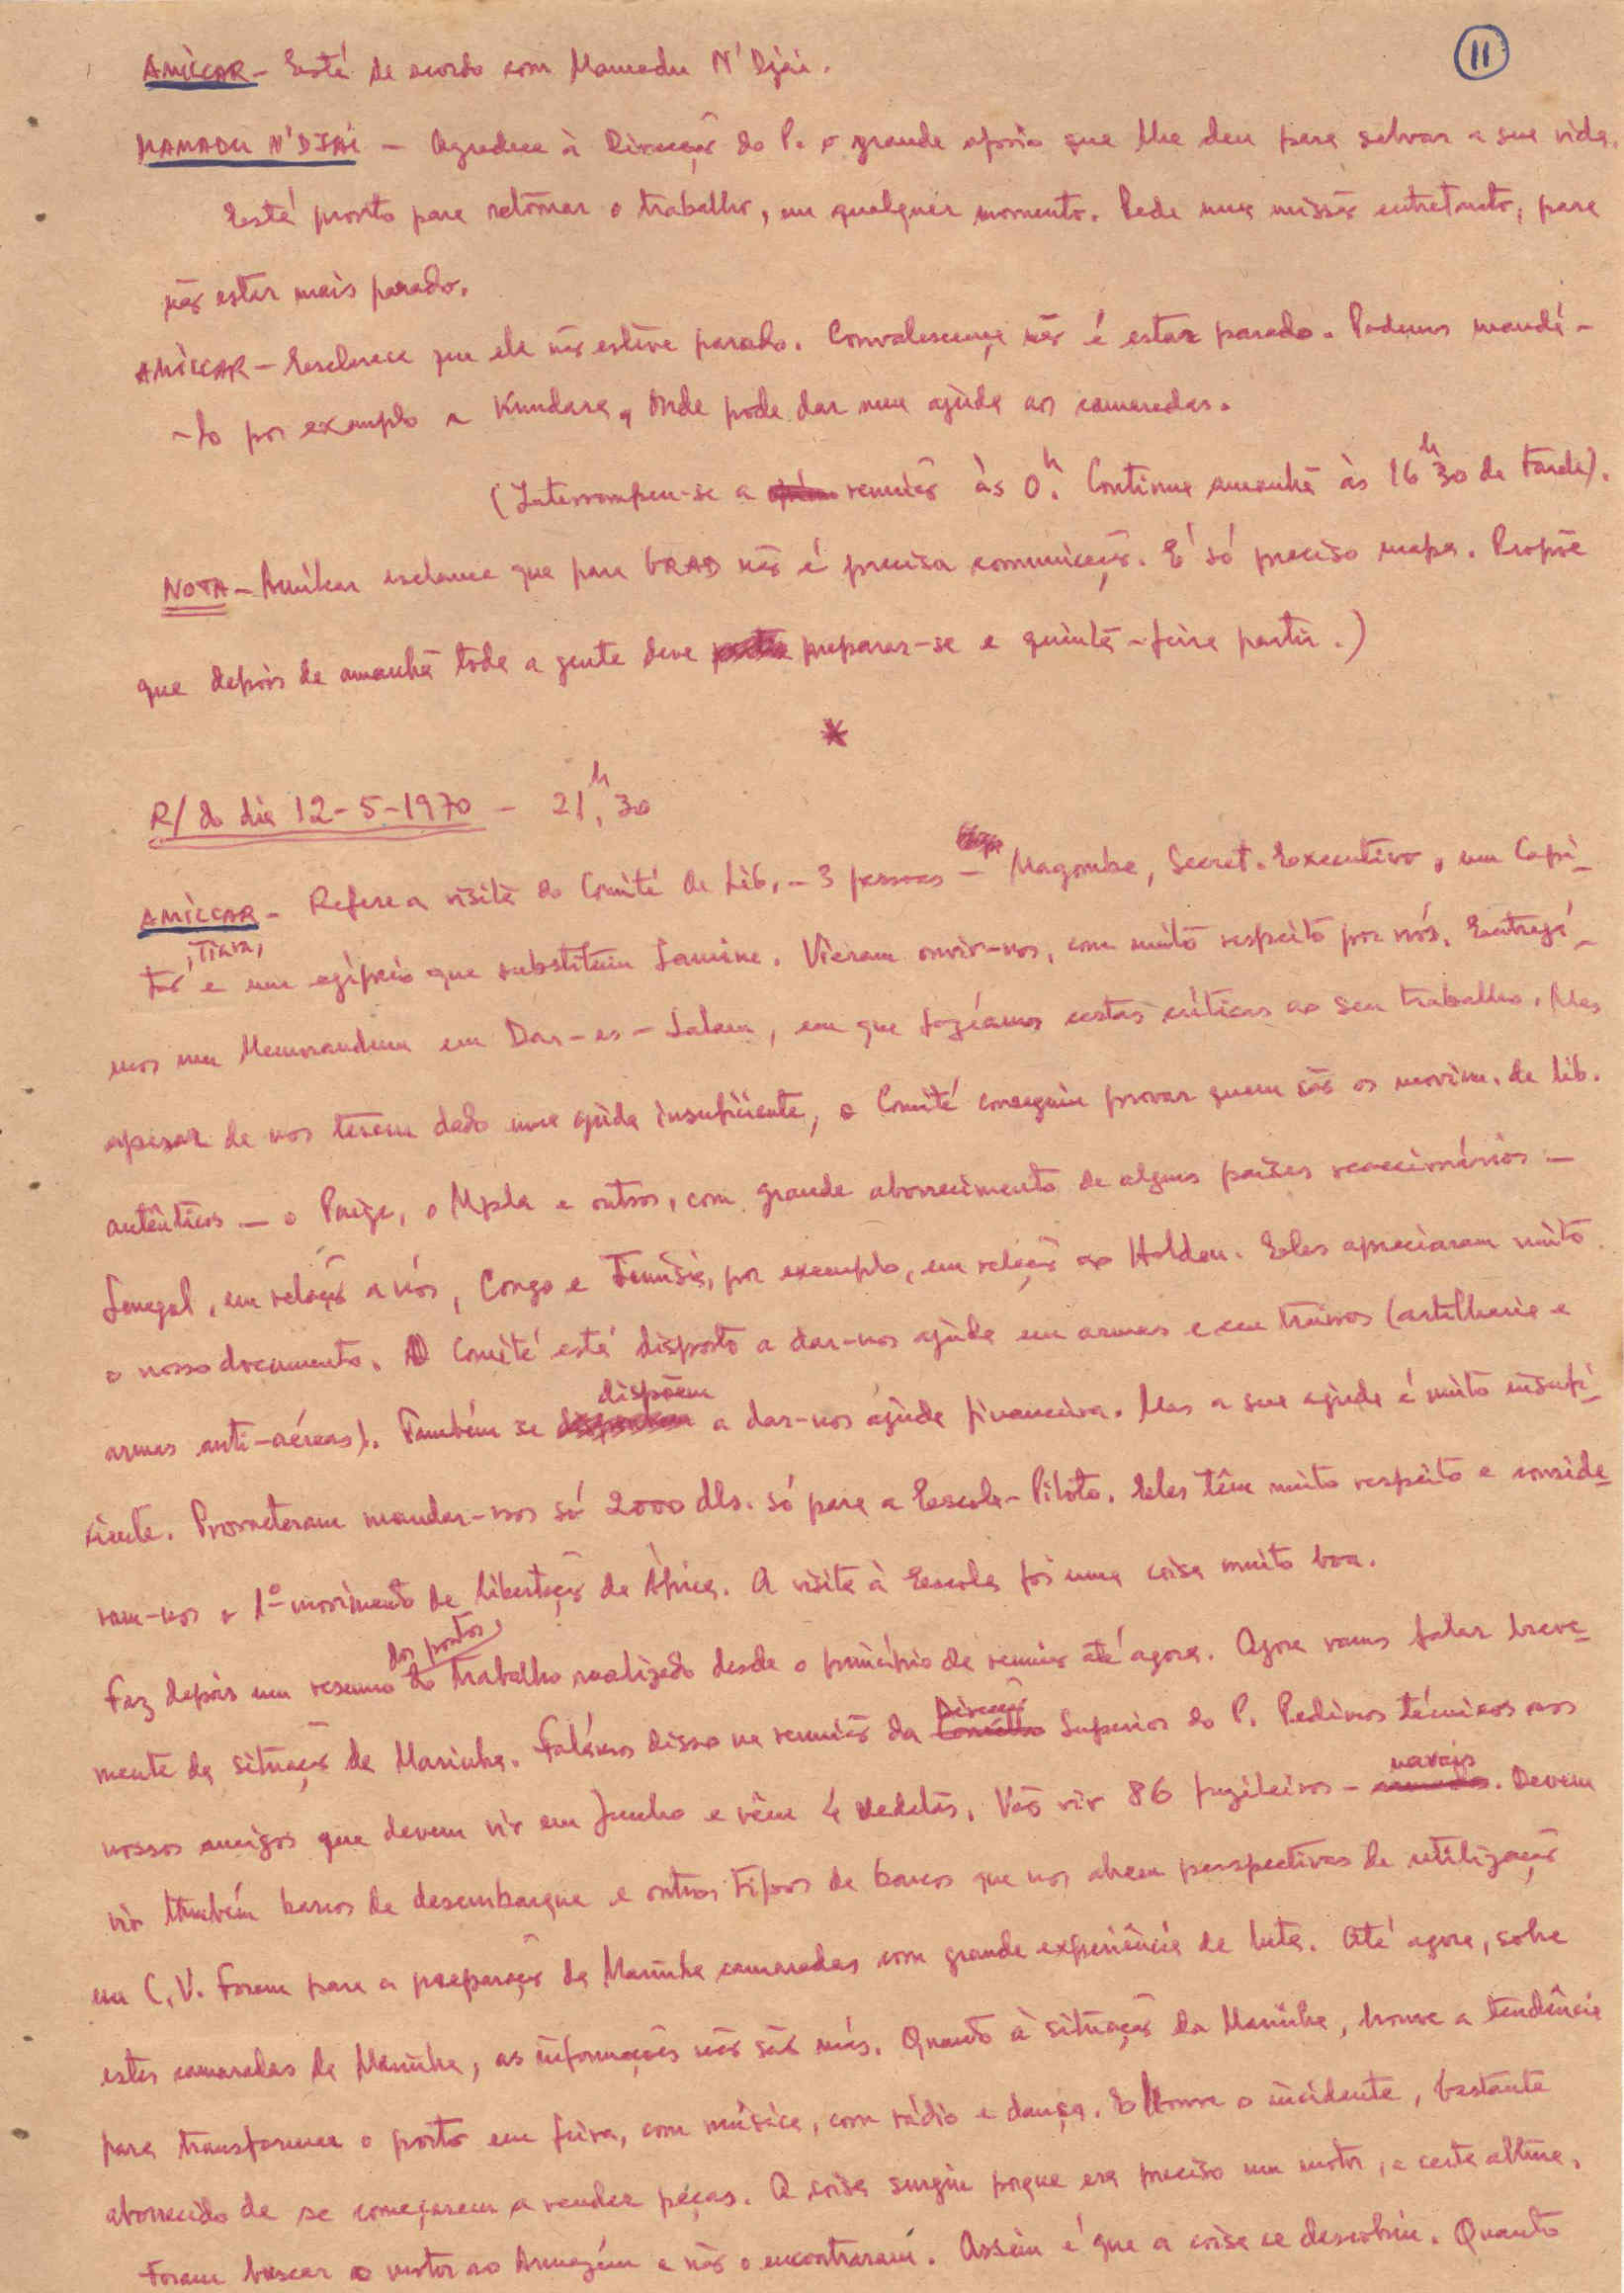 11
AMÍLCAR - Está de acordo com Mamadu N'Djai.
MAMADU N'DJAI - Agradece à Direcção do P. o grande apoio que lhe deu para salvar a sua vida.
Está pronto para retomar o trabalho, em qualquer momento. Pede uma missão entretanto, para
não estar mais parado.
AMÍLCAR - Esclarece que ele não esteve parado. Convalescença não é estar parado. Podemos mandá-
-lo por exemplo a Kundara, onde pode dar uma ajuda aos camaradas.
(Interrompeu-se a reunião às 0h. Continua amanhã às 16h30 da tarde).
NOTA - Amílcar esclarece que para GRAD não é precisa comunicação. É só preciso mapa. Propõe
que depois de amanhã toda a gente deve preparar-se e quinta-feira partir.)
*
R/ do dia 12-5-1970 - 21h,30
AMÍLCAR - Refere a visita do Comité de Lib. - 3 pessoas - Magombe, Secret. Executivo, um Capi-
tão, Tiava, e um egípcio que substituiu Lamine. Vieram ouvir-nos, com muito respeito por nós. Entregá-
mos um Memorandum em Dar-es-Salam, em que fazíamos certas críticas ao seu trabalho. Mas
apesar de nos terem dado uma ajuda insuficiente, o Comité conseguiu provar quem são os movim. de lib.
autênticos - o Paigc, o Mpla e outros, com grande aborrecimento de alguns países reaccionários -
Senegal, em relação a nós, Congo e Tunísia, por exemplo, em relação ao Holden. Eles apreciaram muito
o nosso documento. O Comité está disposto a dar-nos ajuda em armas e em treinos (artilharia e
armas anti-aéreas). Também se dispõem a dar-nos ajuda financeira. Mas a sua ajuda é muito insufi-
ciente. Prometeram mandar-nos só 2000 dls. só para a Escola-Piloto. Eles têm muito respeito e conside-
ram-nos o 1º movimento de libertação da África. A visita à Escola foi uma coisa muito boa.
Faz depois um resumo dos pontos, do trabalho realizado desde o princípio da reunião até agora. Agora vamos falar breve-
mente da situação da Marinha. Falámos disso na reunião da Direcção Superior do P. Pedimos técnicos aos
nossos amigos que devem vir em Junho e vêm 4 vedetas. Vão vir 86 fuzileiros - navais. Devem
vir também barcos de desembarque e outros tipos de barcos que nos abrem perspectivas de utilização
em C.V. Foram para a preparação da Marinha camaradas com grande experiência de luta. Até agora, sobre
estes camaradas da Marinha, as informações não são más. Quanto à situação da Marinha, houve a tendência
para transformar o porto em feira, com música, com rádio e dança. E houve o incidente, bastante
aborrecido de se começarem a vender peças. A coisa surgiu porque era preciso um motor, a certa altura.
Foram buscar o motor ao Armazém e não o encontraram. Assim é que a coisa se descobriu. Quanto